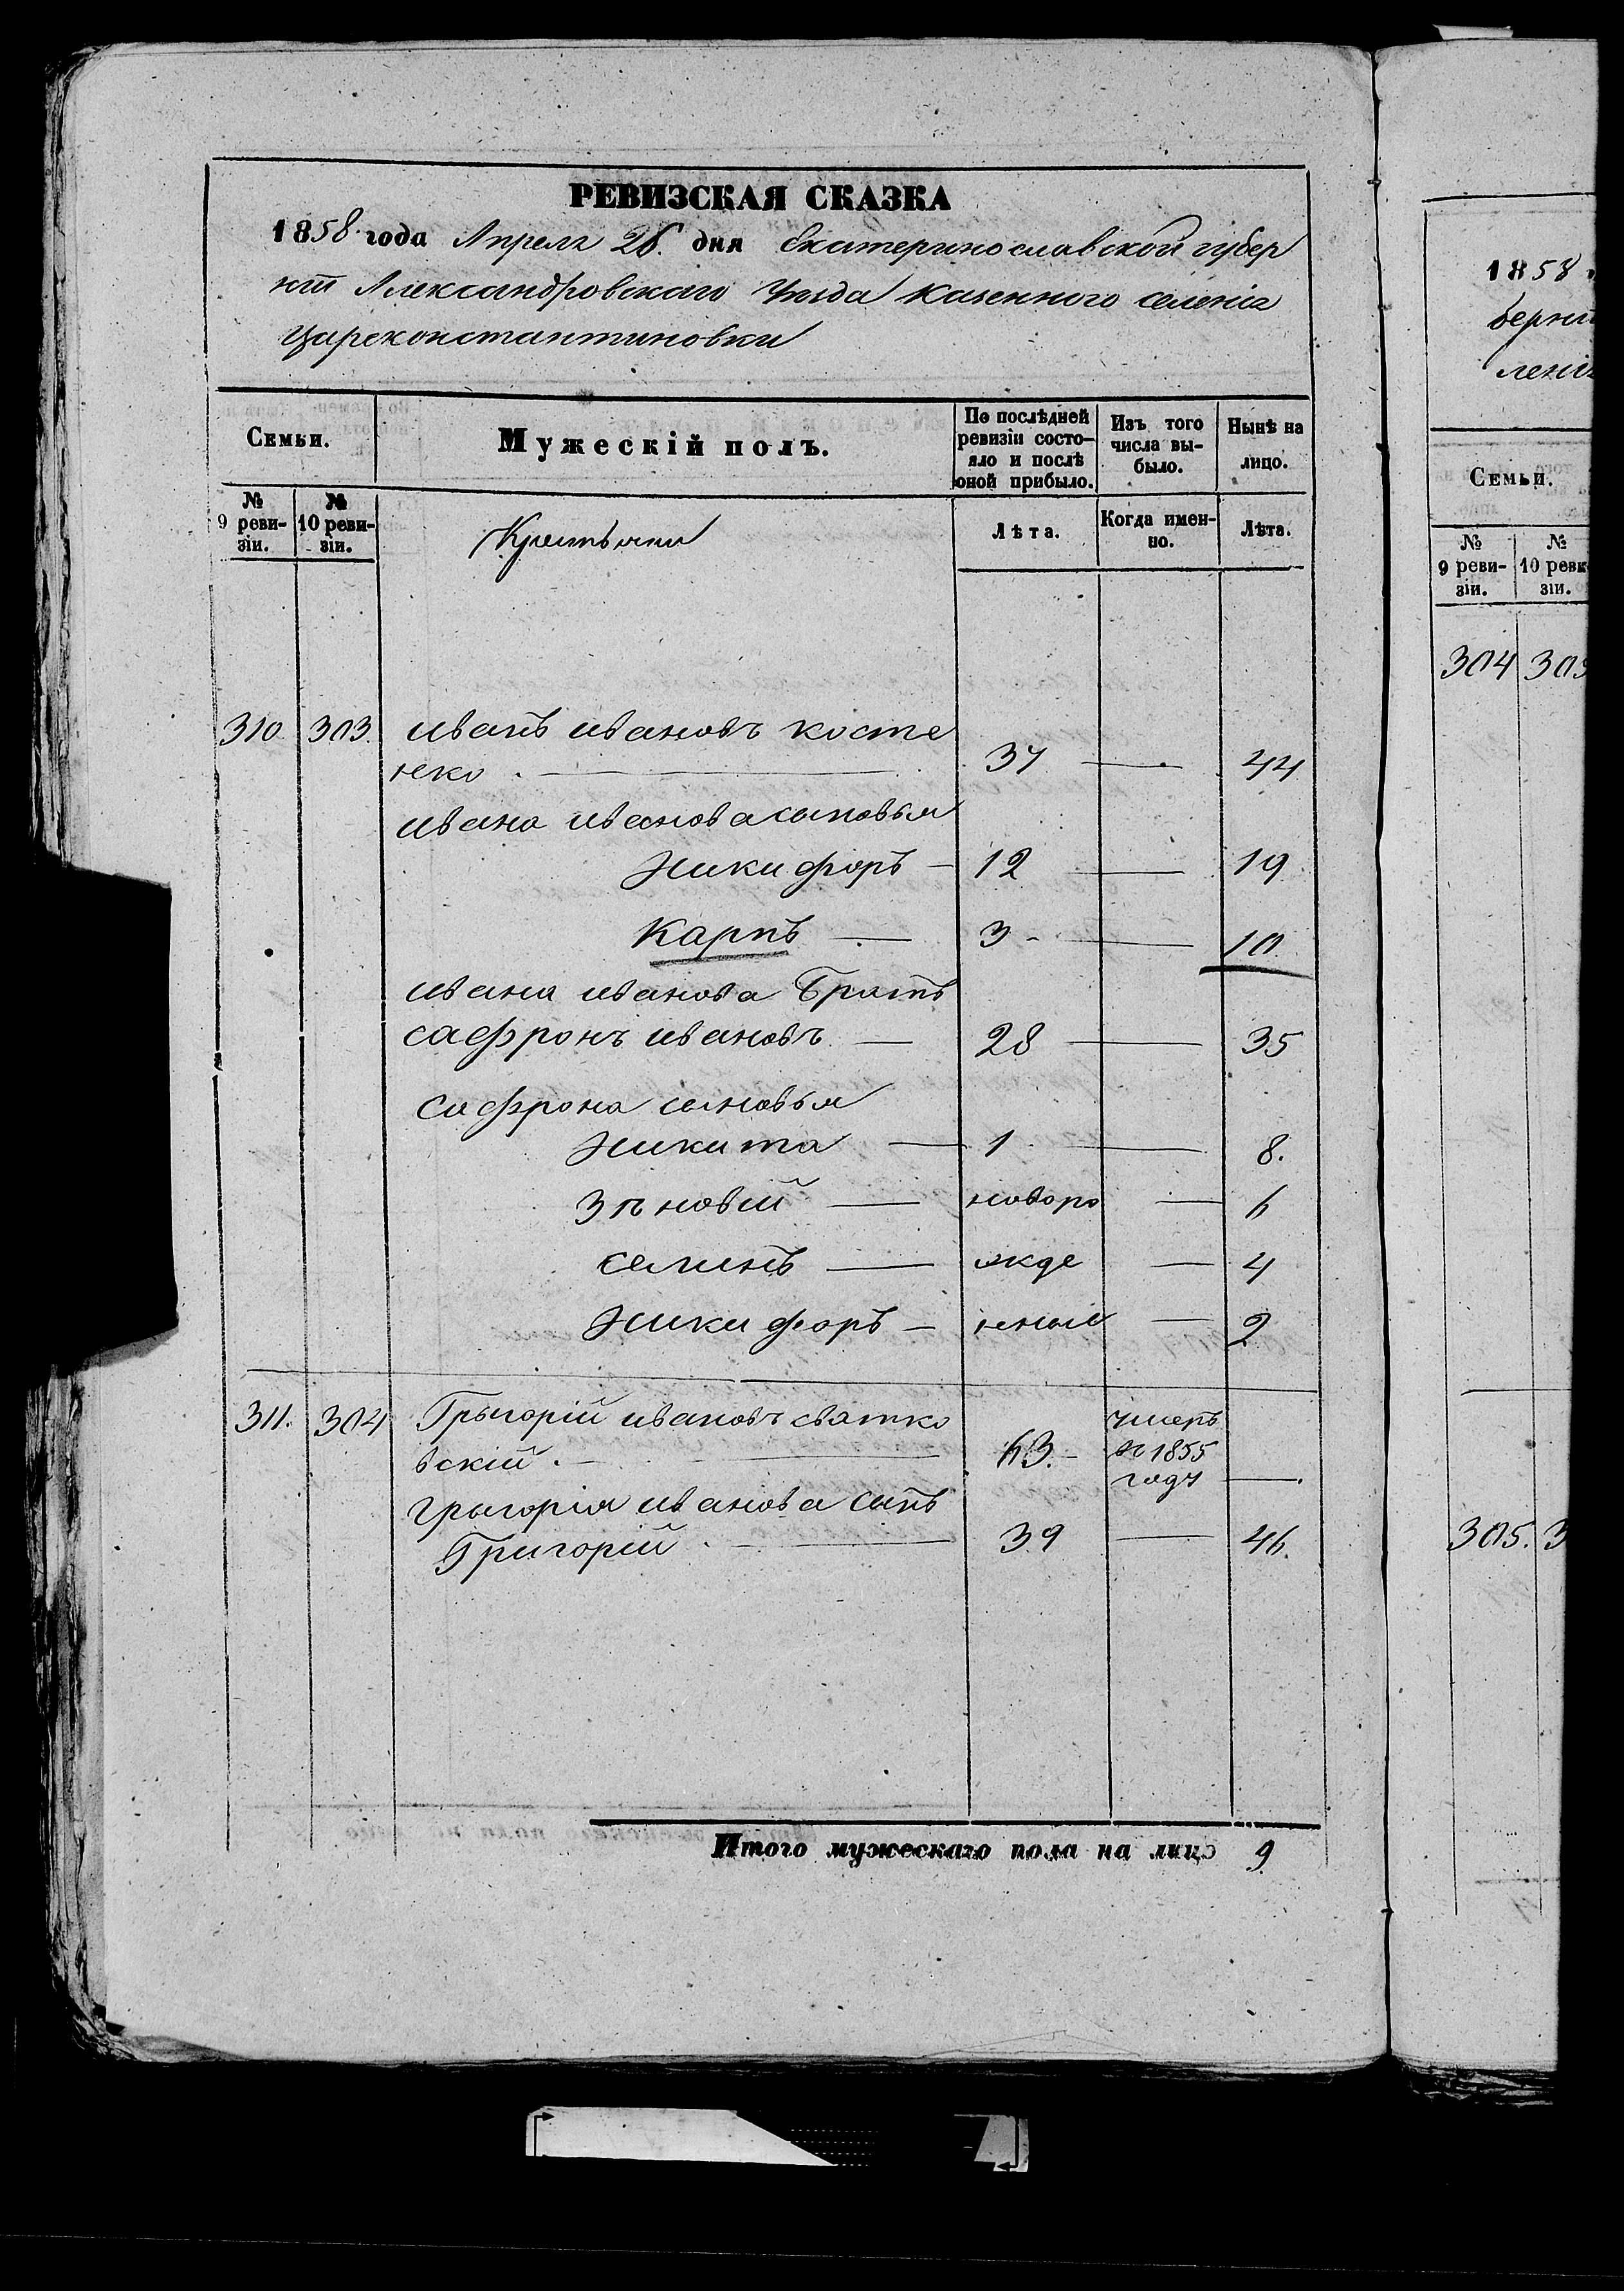 РЕВИЗСКАЯ СКАЗКА
1858 года Апреля 26. дня Екатеринославской губер
нiи Александровскаго Уезда казенного селенія
Цареконстантиновки
Семьи.
Мужескій полъ.
По послѣдней ревизіи состо-яло и послѣ оной прибыло.
Изъ того числа вы-было.
Нынѣ на лицо.
№ 9 реви-зіи.
№ 10 реви-зіи.
Крестьяни
Лѣта.
Когда имен-но.
Лѣта.
310. 303. иванъ ивановъ косте
нко. 37 44
ивана иванова сыновья
Никифоръ 12 19
Карпъ 3 10.
ивана иванова Братъ
сафронъ ивановъ 28 35
сафрона сыновья
Никита 1 8.
Зѣновій новоро 6
семенъ жде 4
Никифоръ нныи 2
311. 304 Грыгорій ивановъ святко
вскій. 63. умеръ въ 1855 году
грыгорія иванова сынъ
Григорій 39 46.
Итого мужескаго пола на лицо 9
1858
берни
ленія
Семьи.
№ 9 реви-зіи.
№ 10 реви
зіи.
304 305
305. 3